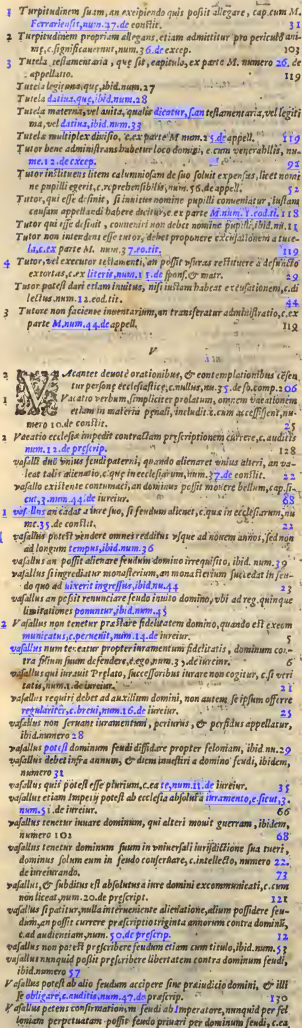 1 Turpitudinem suam, an excipiendo quis possit allegare, cap. cum M.
Ferrariensis, num. 47. de constit. 31
2 Turpitudinem propriam allegans, etiam admittitur pro periculo animę, c. significauerunt, num. 36. de excep. 103
3 Tutela testamentaria, que sit, capitulo, ex parte M. numero 26. de
appellatio. 119
Tutela legitima, que, ibid. num. 27
Tutela datiua, que, ibid. num. 28
Tutela materna, vel auita, qualis dicatur, & an testamentaria, vel legitima, vel datiua, ibid. num. 33
Tutelæ multiplex diuisio, c. ex parte M. num. 25. de appell. 119
Tutor bene administrans habetur loco domini, c. cum venerabilis, nume. 12. de excep. 92
Tutor instituens litem calumniosam de suo soluit expensas, licet nomine pupilli egerit, c. reprehensibilis, num. 56. de appell. 52
Tutor, qui esse desinit, si inuitus nomine pupilli conueniatur, iustam
causam appellandi habere dicitur, c. ex parte M. num. 1. eod. tit. 118
Tutor qui esse desiit, conueniri non debet nomine pupilli, ibid. nu. 11
Tutor non intendens esse tutor, debet proponere excusationem a tutela, c. ex parte M. num. 37. eo. tit. 119
4 Tutor, vel executor testamenti, an possit vsuras restituere à defuncto
extortas, c. ex literis, num. 1. de spons. & matr. 29
Tutor potest dari etiam inuitus, nisi iustam habeat excusationem, c. dilectus. num. 12. eod. tit. 44
3 Tutore non faciente inuentarium, an transferatur administratio, c. ex
parte M. num. 44. de appell. 119
V
2 Vacantes deuotè orationibus, & contemplationibus censentur personę ecclesiasticę, c. nullus, nu. 35. de fo. comp. 206
1 Vacatio verbum, simpliciter prolatum, omnem vacationem
etiam in materia penali, includit. c. cum accessissent, numero 10. de constit. 25
2 Vacatio ecclesiæ impedit contractam prescriptionem currere, c. auditis
num. 12. de prescrip. 128
vasalli duo vnius feudi paterni, quando alienaret vnius alteri, an valeat talis alienatio, c. que in ecclesiarum, num. 37. de constit. 22
vasallo existente contumaci, an dominus possit mouere bellum, cap. sicut, 3. num. 44. de iureiur. 68
1 vasallus an cadat a iure suo, si feudum alienet, c. quæ in ecclesiarum, nume. 35. de constit. 22
vasallus potest vendere omnes redditus vsque ad nouem annos, sed non
ad longum tempus, ibid. num. 36
vasallus an possit alienare feudum domino irrequisito, ibid. num. 39
vasallus si ingrediatur monasterium, an monasterium succedat in feudo quo ad vixerit ingressus, ibid. nu. 44 23
vasallus an possit renunciare feudo inuito domino, vbi ad reg. quinque
limitationes ponuntur, ibid. num. 45
2 Vasallus non tenetur præstare fidelitatem domino, quando est excommunicatus, c. peruenit, num. 14. de iureiur. 5
vasallus num teneatur propter iuramentum fidelitatis, dominum contra filium suum defendere, c. ego, num. 3. de iureiur. 6
vasallus qui iurauit Prelato, successoribus iurare non cogitur, c. si veritatis, num. 1. de iureiur. 21
vasallus requiri debet ad auxilium domini, non autem se ipsum offerre
regulariter, c. breui, num. 16. de iureiur. 25
vasallus non seruans iuramentum, periurus, & perfidus appellatur,
ibid. numero 28
vasallus potest dominum feudi diffidare propter feloniam, ibid. nu. 29
vasallus debet infra annum, & diem inuestiri a domino feudi, ibidem,
numero 31
vasallus quis potest esse plurium, c. ea te, num. 11. de iureiur. 35
vasallus etiam Imperij potest ab ecclesia absolui a iuramento, c. sicut, 3.
num. 51. de iureiur. 66
vasallus tenetur iuuare dominum, qui alteri mouit guerram, ibidem,
numero 102 68
vasallus tenetur dominum suum in vniuersali iurisdictione sua tueri,
dominus solum eum in feudo conseruare, c. intellecto, numero 22.
de iureiurando. 73
vasallus, & subditus est absolutus a iure domini excommunicati, c. cum
non liceat, num. 20. de prescript. 121
vasallus si patitur, nulla interueniente alienatione, alium possidere feudum, an possit currere prescriptio triginta annorum contra dominũ,
c. ad audientiam, num. 50. de prescrip. 12
vasallus non potest prescribere feudum etiam cum titulo, ibid. num. 53
vasallus nunquid possit prescribere libertatem contra dominum feudi,
ibid. numero 57
V vasallus potest ab alio feudum accipere sine præiudicio domini, & illi
se obligare, c. auditis, num. 47. de prescrip. 130
vasallus petens confirmationem feudi ab Imperatore, nunquid per feloniam perpetuatam possit feudo priuari per dominum feudi, c. ex